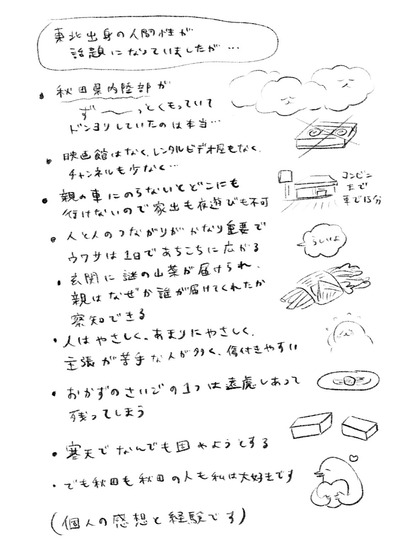 東北出身の人間性が
話題になっていましたが…
・秋田県内陸部が
ず〜〜っとくもっていて
ドンヨリしていたのは本当…
・映画館はなく、レンタルビデオ屋もなく、
チャンネルも少なく…
・親の車にのらないとどこにも
行けないので家出も夜遊びも不可
コンビニ
まで
車で15分
・人と人のつながりがかなり重要で
ウワサは1日であちこちに広がる
らしいよ
・玄関に謎の山菜が届けられ、
親はなぜか誰が届けてくれたか
察知できる
・人はやさしく、あまりにやさしく、
主張が苦手な人が多く、傷付きやすい
・おかずのさいごの1つは遠慮しあって
残ってしまう
・寒天でなんでも固めようとする
・でも秋田も秋田の人も私は大好きです
(個人の感想と経験です)